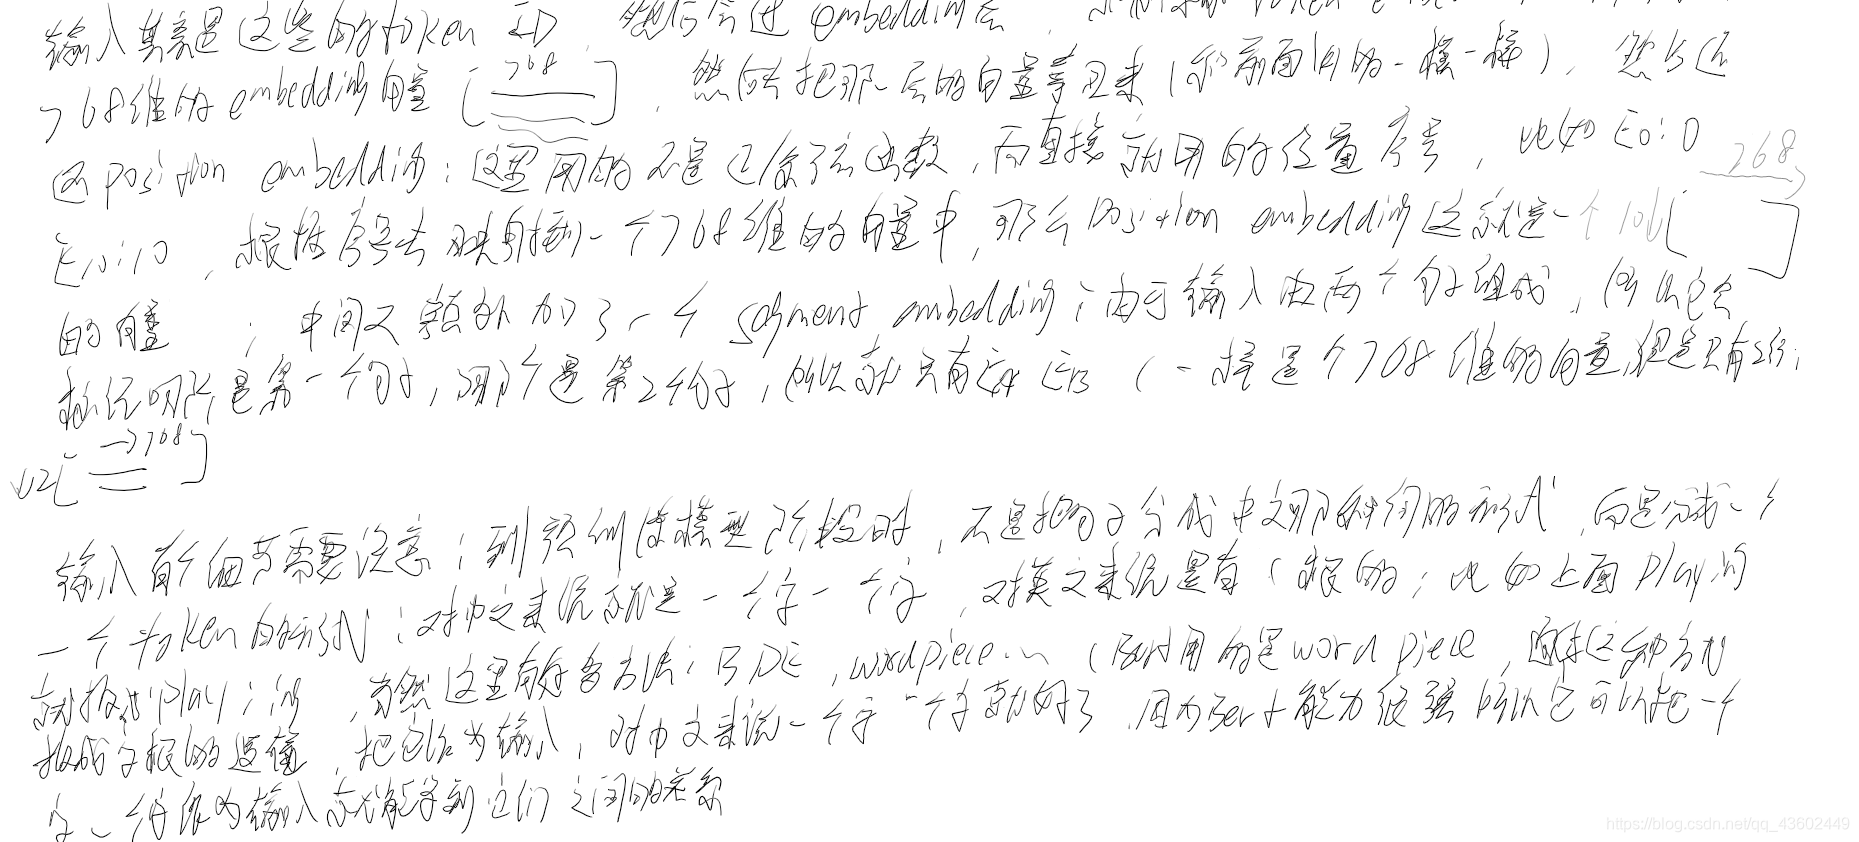 输入其实是这些的token ID,然后会进embedding层,
768维的embedding向量[768],然后去把那一层的向量拿出来(和前面讲的一模一样),然后还
因position embedding:这里用的不是正余弦函数,而直接就用的位置序号,比如E0:0 768
E10:10,根据序号去映射到一个768维的向量中,那么position embedding这就是一个10b[ ]
的向量;中间又额外加了一个segment embedding;由于输入由两个句子组成,所以它会
标记哪个是第一个句子,哪个是第2个句子,所以就只有EA EB(一样是个768维的向量,但是只有2行;
↓2[→768]
输入有个细节需要注意;到预训练模型阶段时,不是把句子分成中文那种词的形式,而是分成一个
一个token的形式;对中文来说就是一个字一个字,对英文来说是有词根的;比如上面playing
就拆成play;ing,当然这里有好多方法:BPE,wordpiece...(Bert用的是word piece,通过这种方式
拆成字根的逻辑,把它作为输入,对中文来说一个字一个字就好了,因为Bert能力很强所以它可以把一个
字一个字做为输入就能学到它们之间的关系
https://blog.csdn.net/qq_43602449